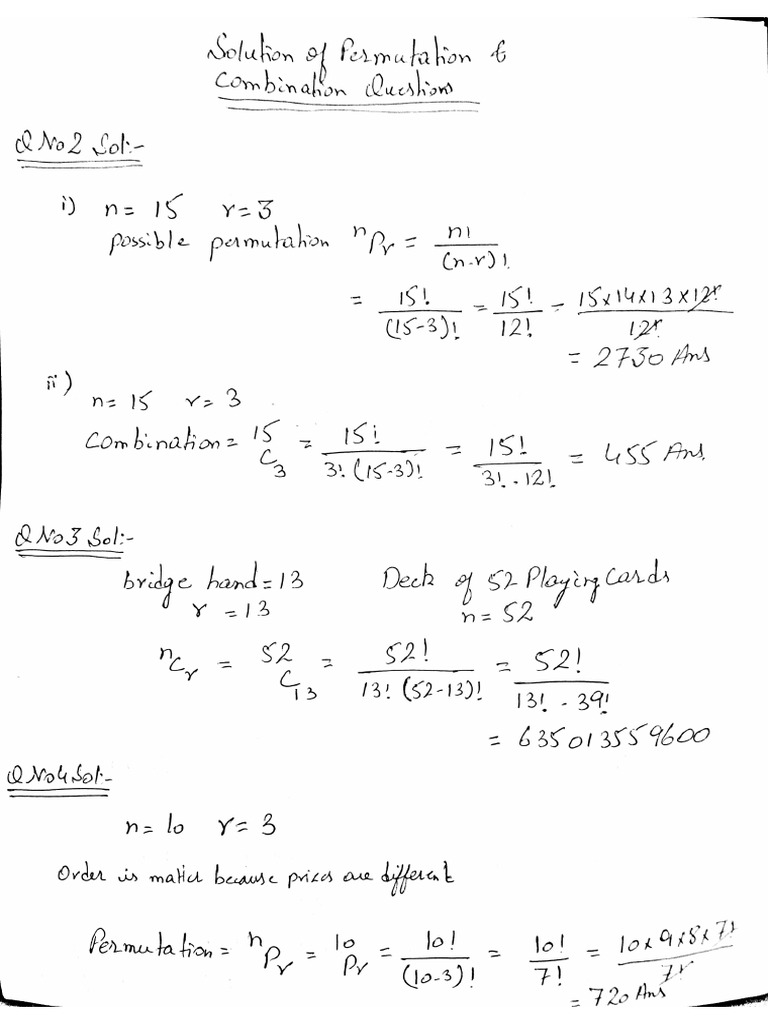 Solution of Permutation &
Combination Questions
Q No2 Sol:-
i) n= 15 r=3
possible permutation nPr = n! / (n-r)!
= 15! / (15-3)! = 15! / 12! = 15x14x13x12! / 12!
= 2730 Ans
ii)
n= 15 r= 3
Combination = 15C3 = 15! / 3! (15-3)! = 15! / 3! . 12! = 455 Ans.
Q No3 Sol:-
bridge hand = 13 Deck of 52 Playing Cards
r = 13 n= 52
nCr = 52C13 = 52! / 13! (52-13)! = 52! / 13! . 39!
= 635013559600
Q No4 Sol:-
n= 10 r= 3
Order is matter because prizes are different
Permutation = nPr = 10Pr = 10! / (10-3)! = 10! / 7! = 10x9x8x7! / 7!
= 720 Ans